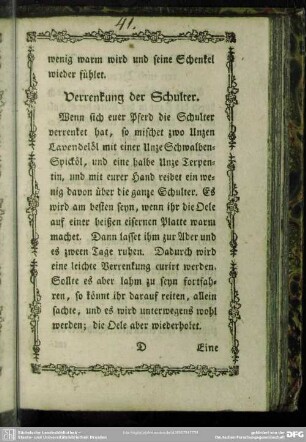 41.
wenig warm wird und seine Schenkel
wieder fühlet.
Verrenkung der Schulter.
Wenn sich euer Pferd die Schulter
verrenket hat, so mischet zwo Unzen
Lavendelöl mit einer Unze Schwalben-
Spicköl, und eine halbe Unze Terpen-
tin, und mit eurer Hand reibet ein we-
nig davon über die ganze Schulter. Es
wird am besten seyn, wenn ihr die Oele
auf einer heißen eisernen Platte warm
machet. Dann lasset ihm zur Ader und
es zween Tage ruhen. Dadurch wird
eine leichte Verrenkung curirt werden.
Sollte es aber lahm zu seyn fortfah-
ren, so könnt ihr darauf reiten, allein
sachte, und es wird unterwegens wohl
werden; die Oele aber wiederholet.
D Eine